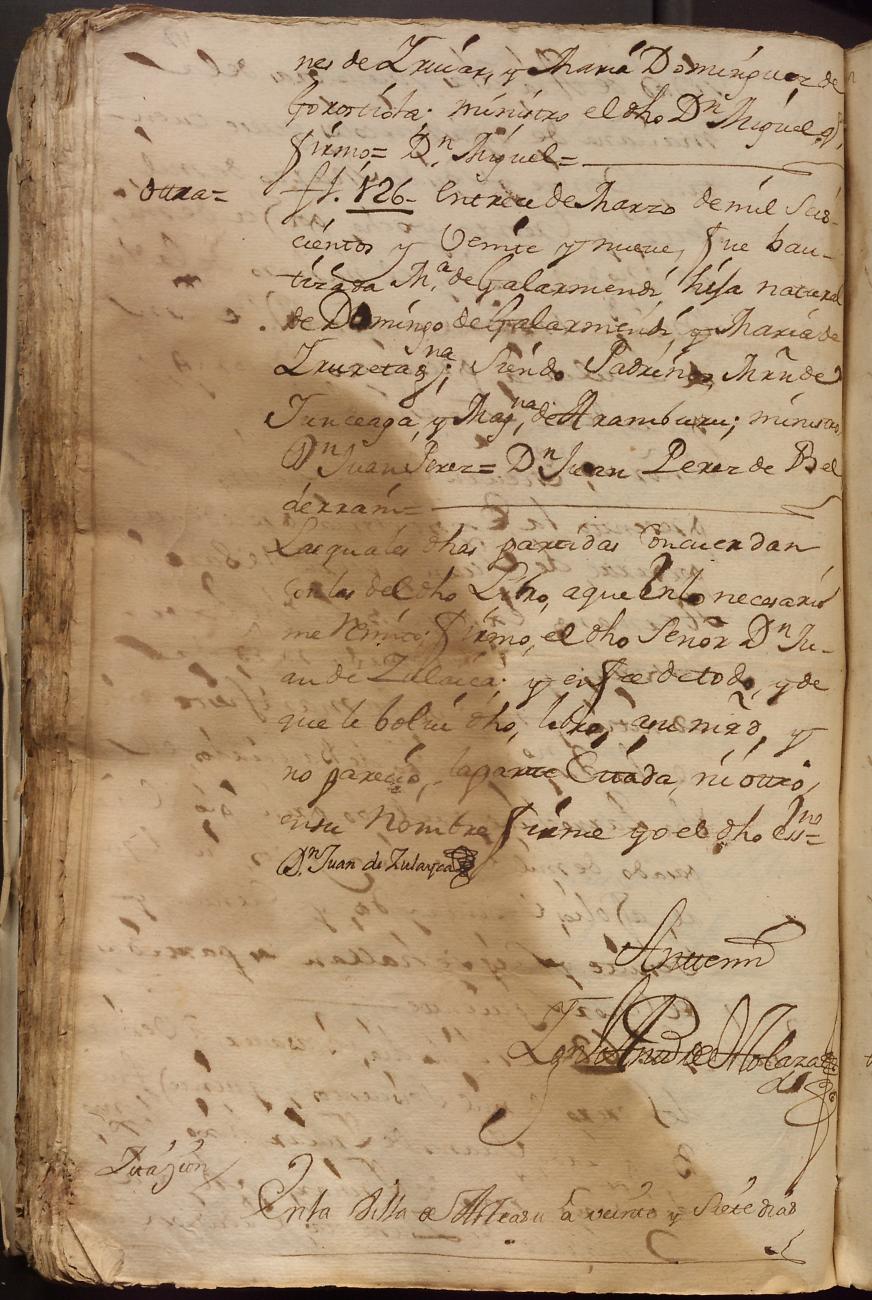 nes de Yruar, y Maria Dominguez de
Gorostiola; ministro el dho Dn Miguel, qe.
firmo= Dn. Miguel=
Outra=
fl. 126- Entrece de Marzo de mil seis-
cientos y Veinte y nueve, fue bau-
tizada Ma. de Galarmendi, hija natural
de Domingo de Galarmendi, y Maria de
Yruretagna; siendo Padrinos, Mrn de
Junceaga, y Magna, de Aramburu; ministro
Dn Juan Perez= Dn Juan Perez de Bel
derrain=
Las quales dhas partidas Concuerdan
con las del dho Libro, a que Enlo necesario
me Remito; firmo, el dho Señor Dn Ju-
an de Zulaica; y en fee de todo, y de
que le bolui dho, libro, a su mrd, y
no pareció, la parte Citada, ni outro,
en su Nombre firme yo el dho essno=
Dn. Juan de Zulayca
Antemi
de Alcaza
Zitazion
En la Villa de Asteasu a veinte y siete dias